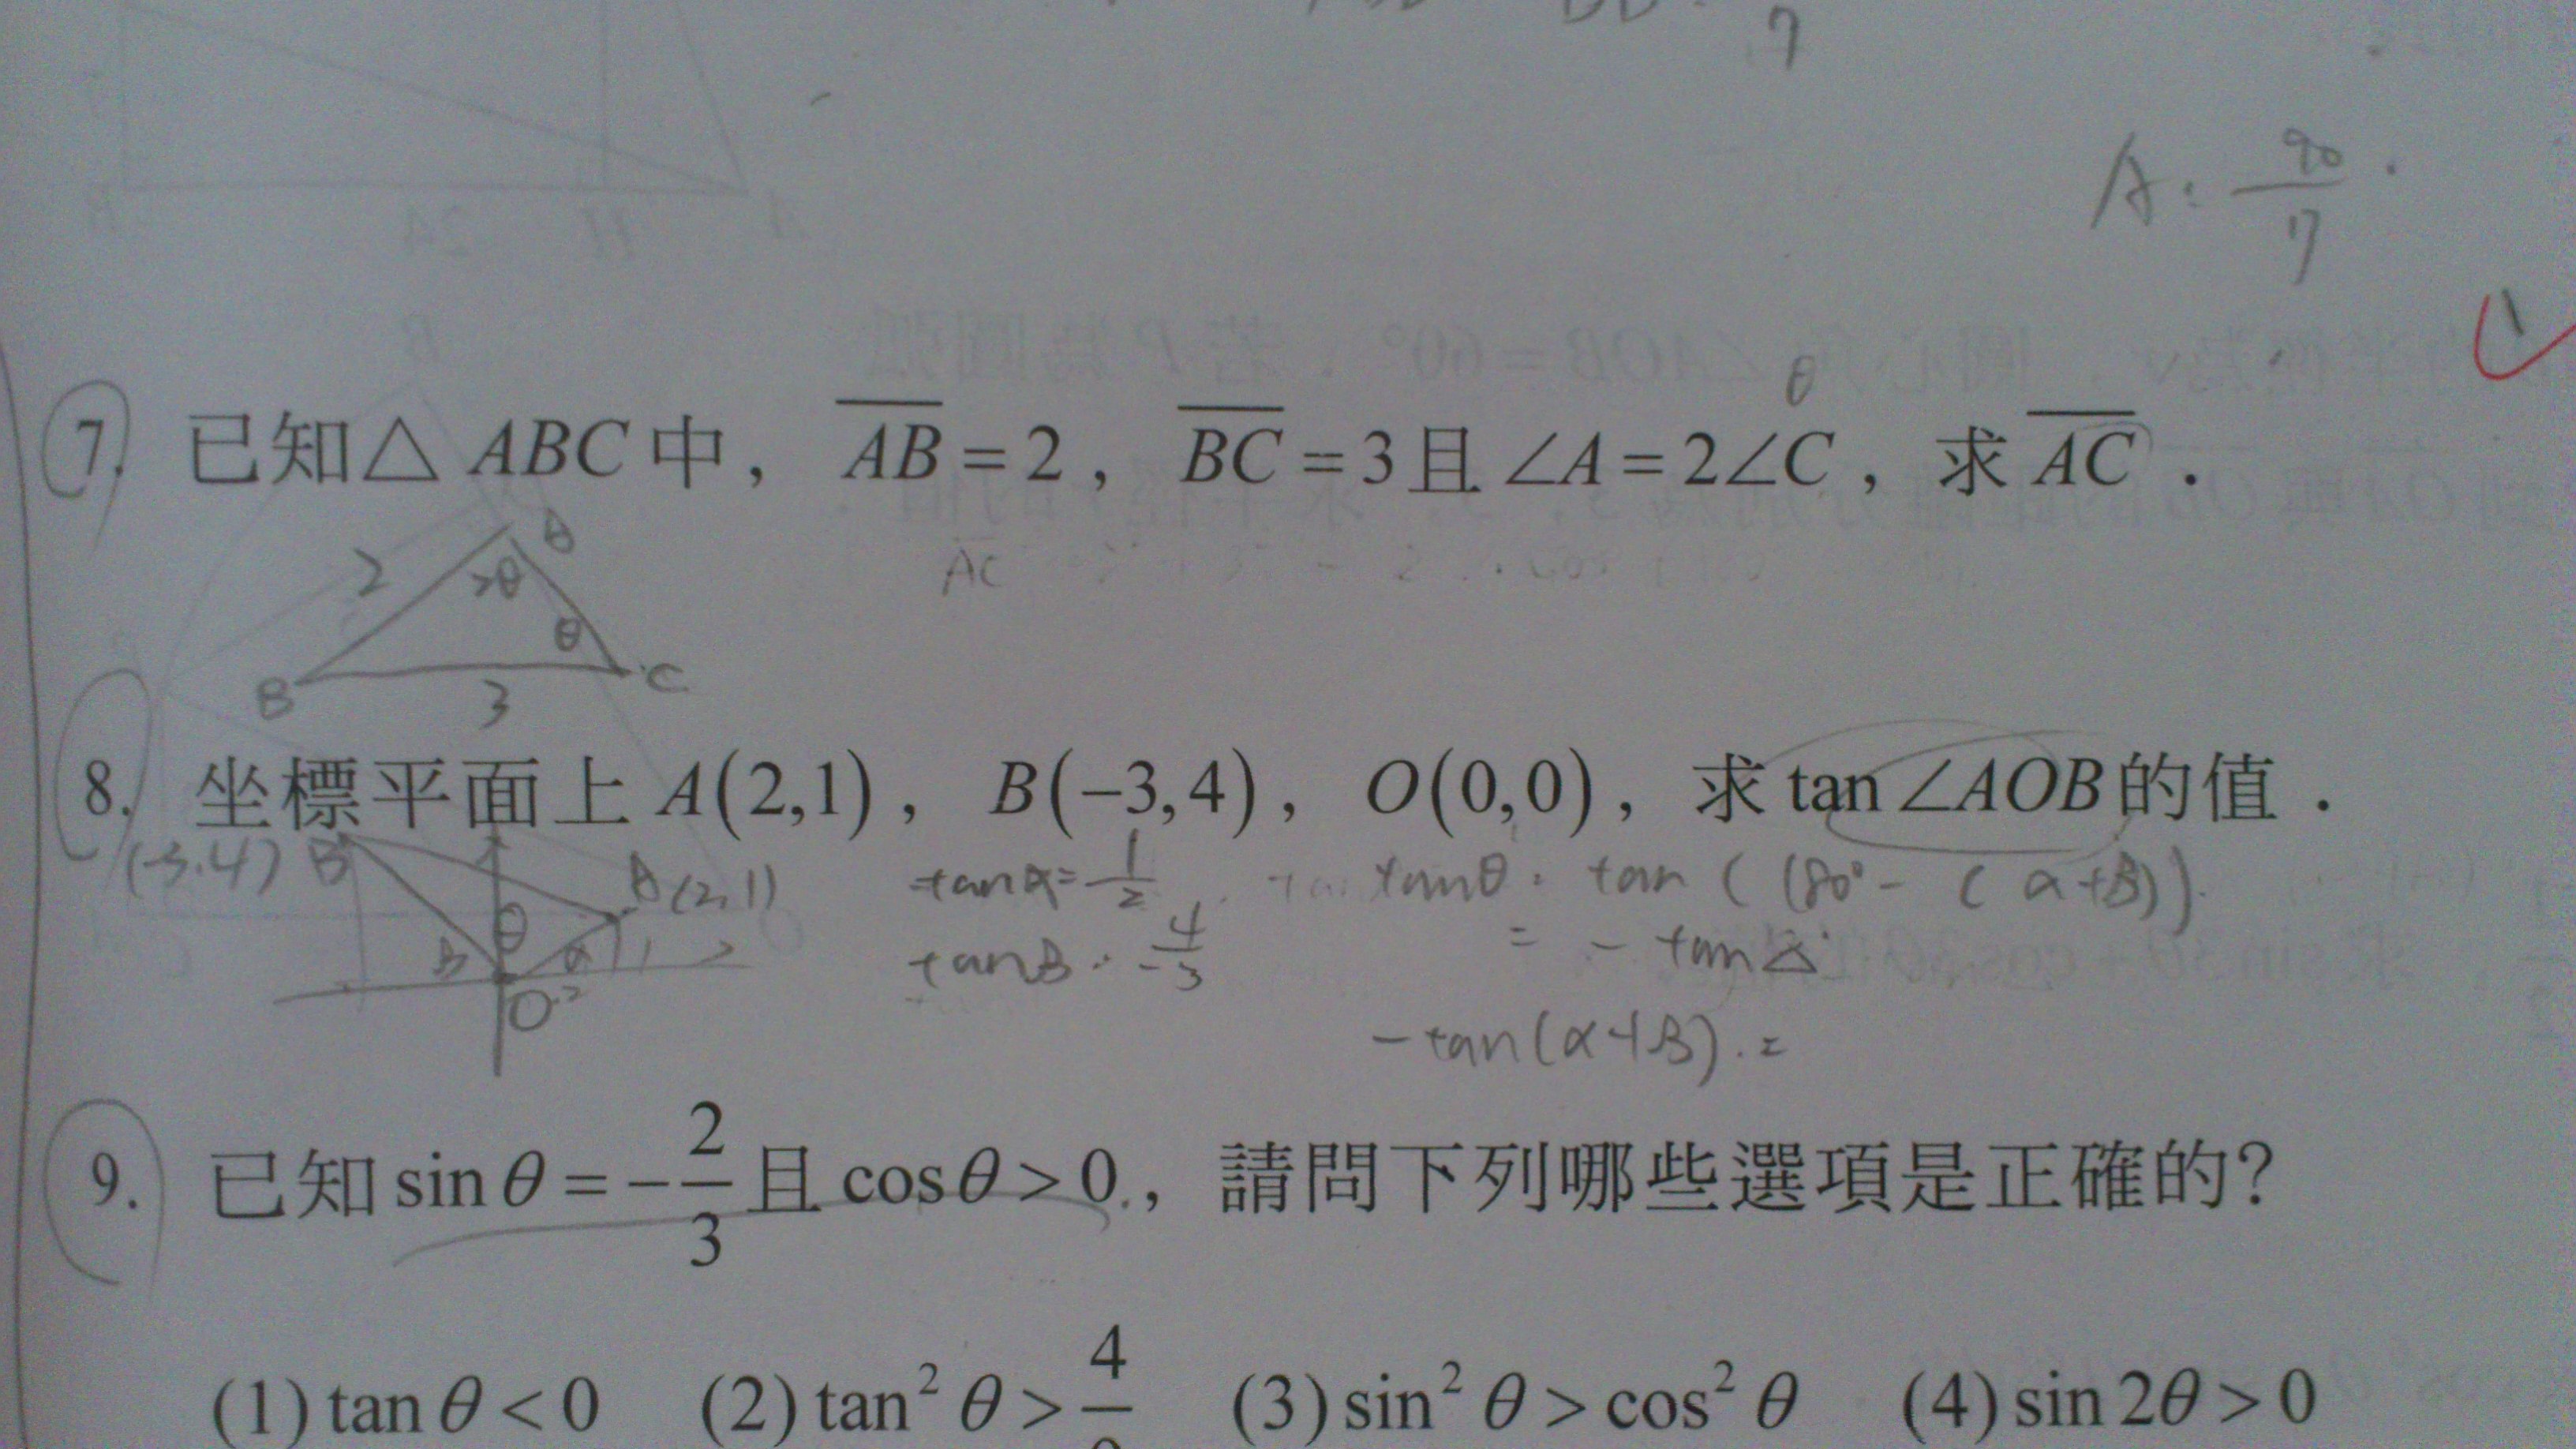 7
A: 90/17.
θ
7. 已知△ ABC 中，AB = 2，BC = 3 且 ∠A = 2∠C，求 AC．
AC
2 2θ θ
B 3 C
8. 坐標平面上 A(2,1)，B(−3,4)，O(0,0)，求 tan ∠AOB 的值．
(-3.4) B A(2,1) tanα = 1/2 tanθ = tan(180° - (α+β)).
θ α 1 tanβ = -4/3 = - tan
O 2
- tan(α+β). =
9. 已知 sin θ = −2/3 且 cos θ > 0，請問下列哪些選項是正確的？
(1) tan θ < 0 (2) tan² θ > 4/ (3) sin² θ > cos² θ (4) sin 2θ > 0